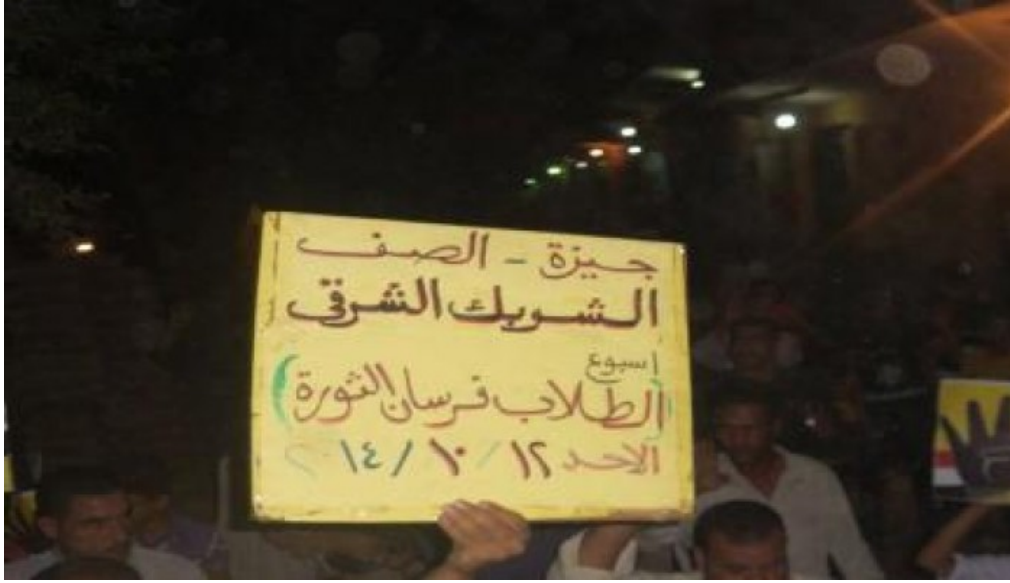 جيزة - الصف
الشوبك الشرقي
أسبوع
(الطلاب فرسان الثورة)
الاحد ١٢ / ١٠ / ٢٠١٤